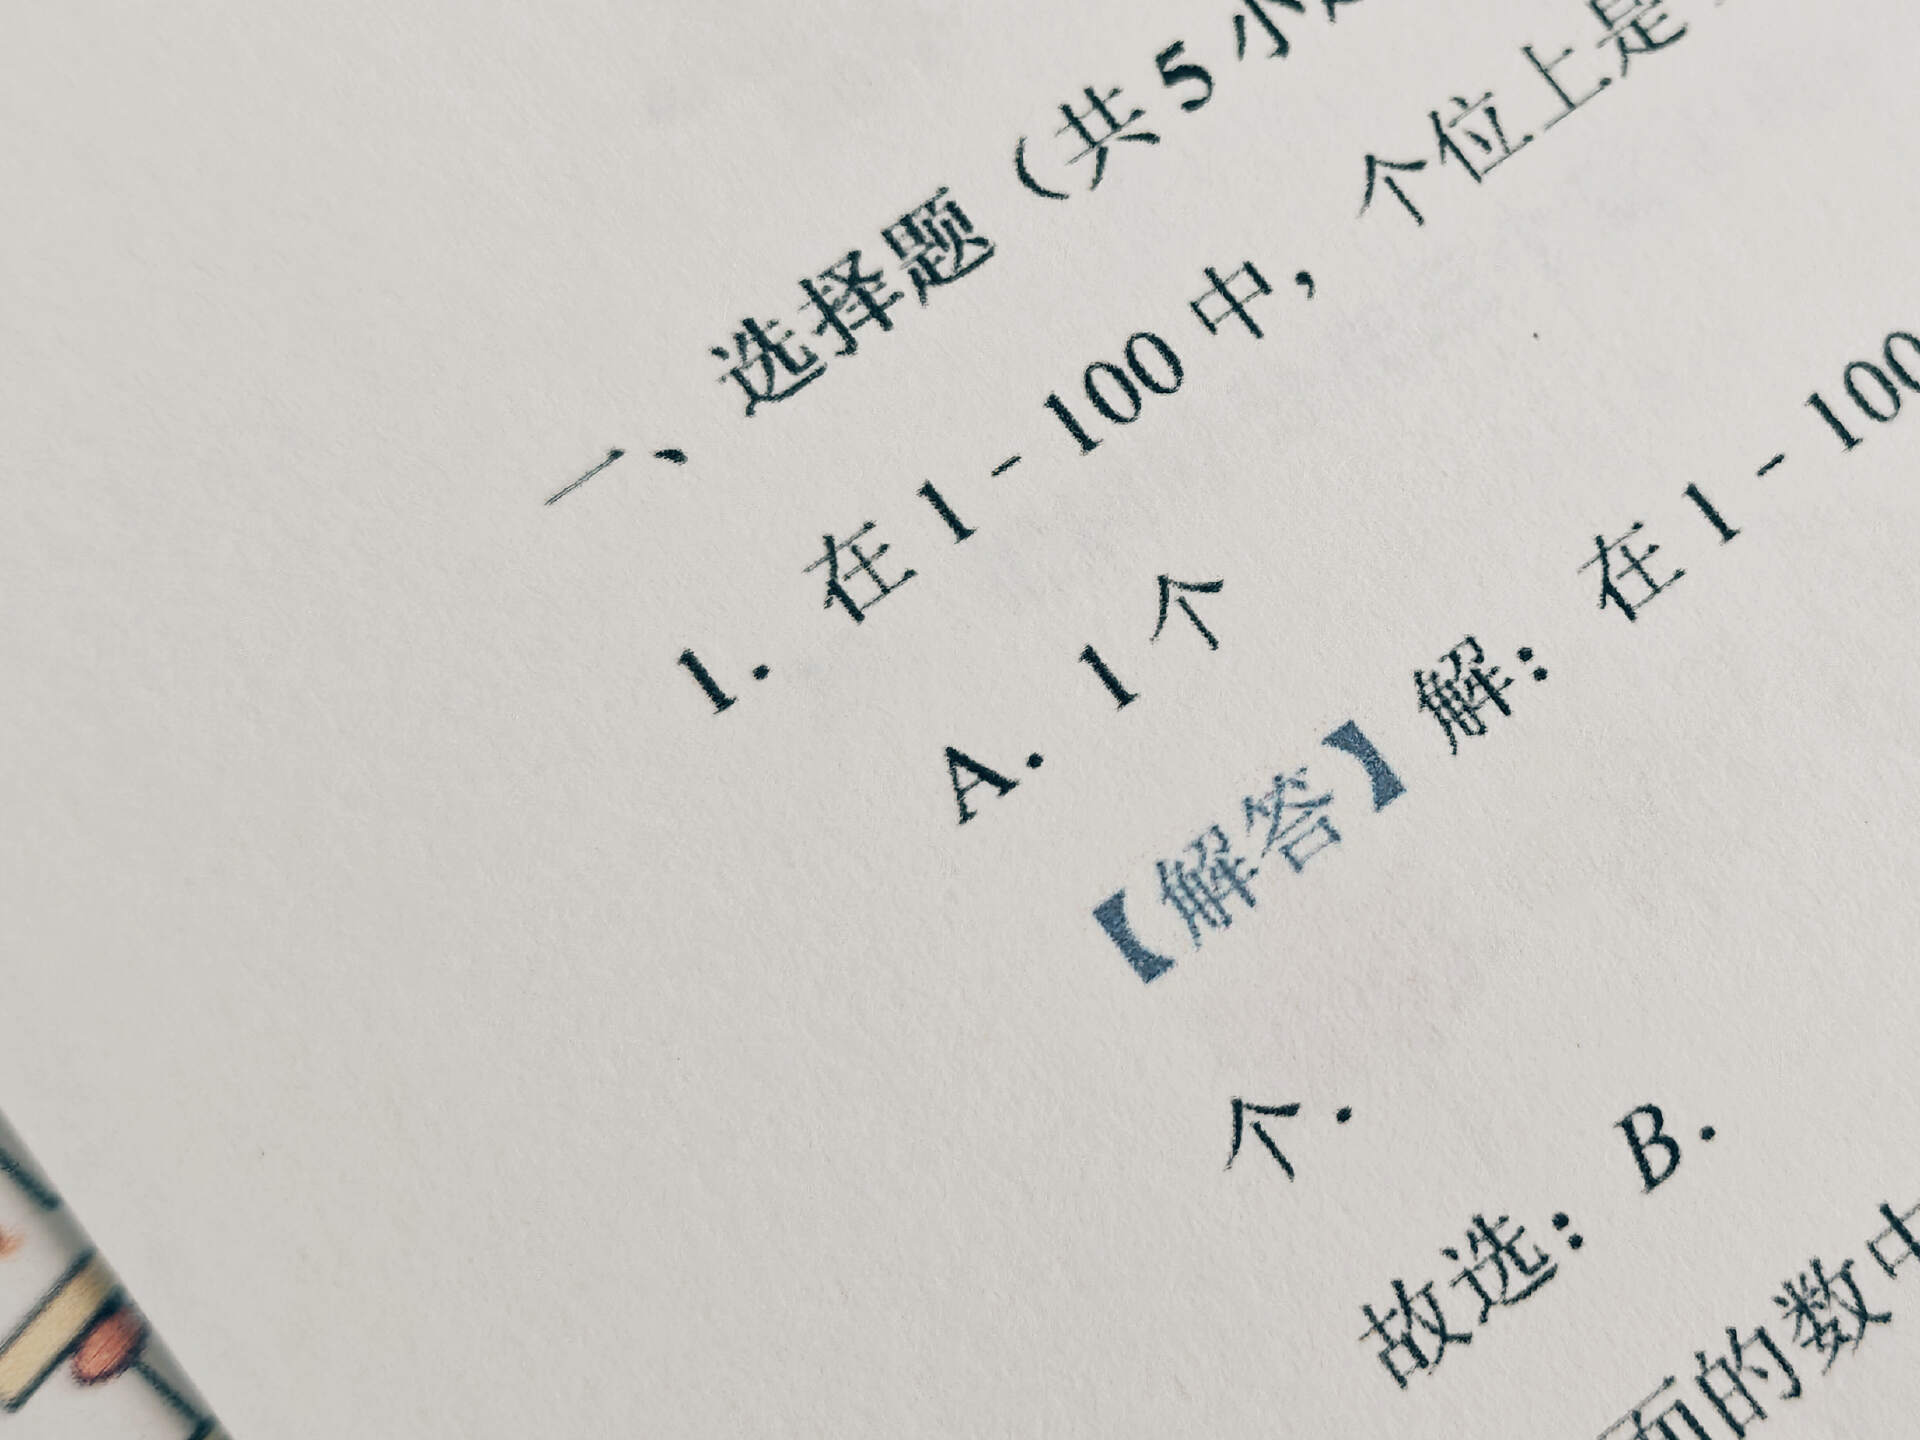 一、选择题（共 5 小
1．在 1﹣100 中，个位上是
A．1 个
【解答】解：在 1﹣100
个．
故选：B．
面的数中